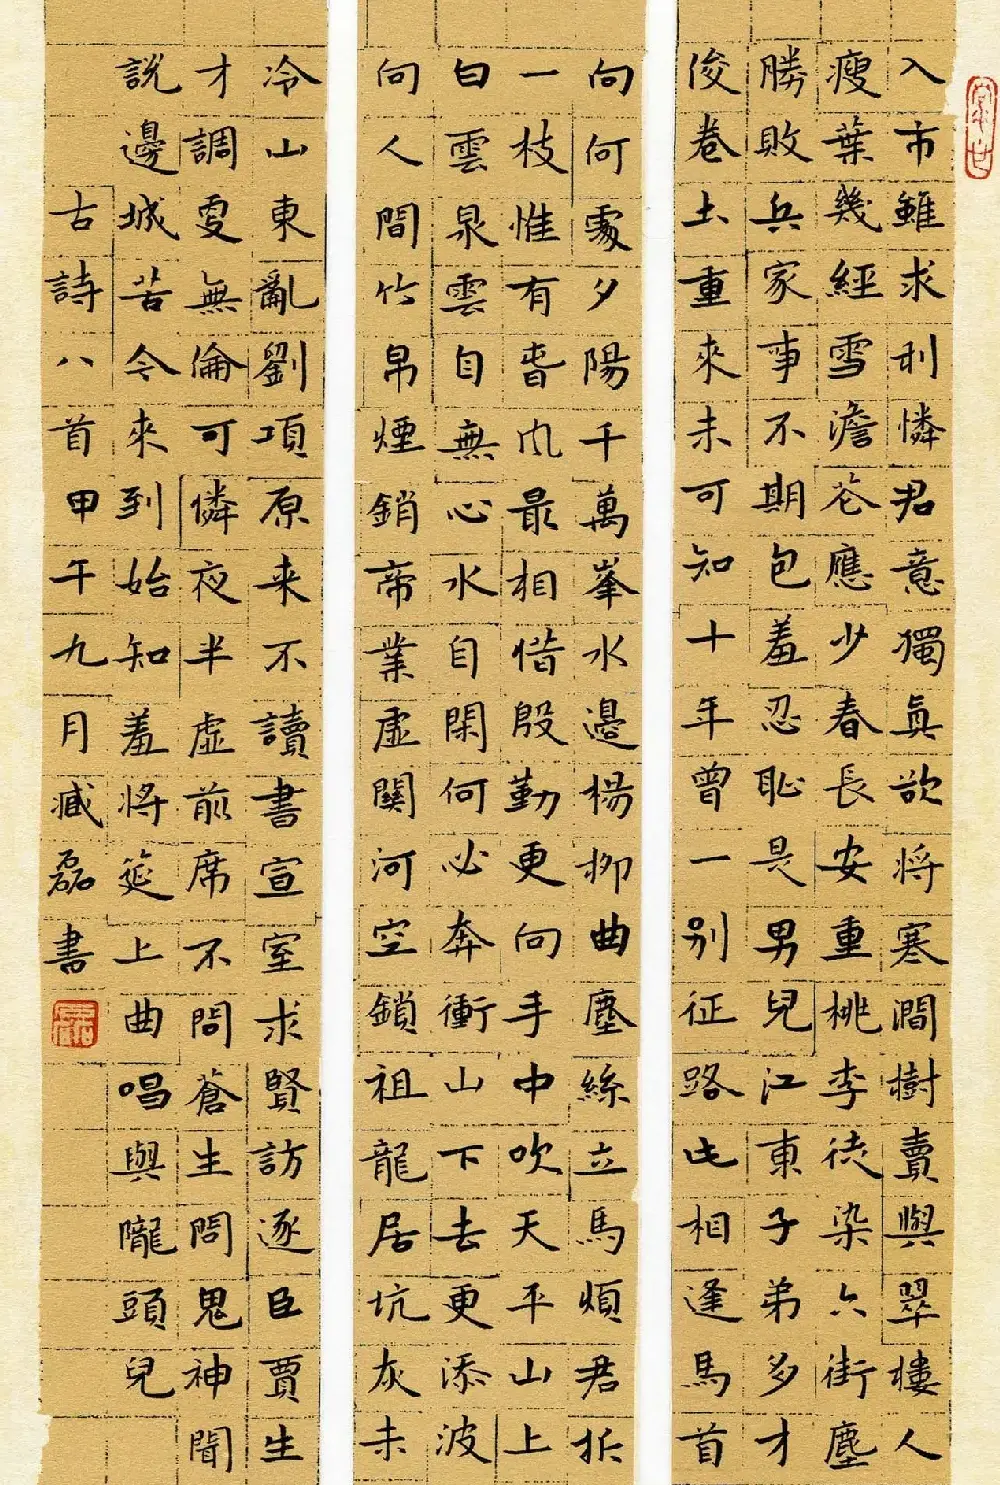 入市雖求利憐君意獨真欲將寒澗樹賣與翠樓人
瘦葉幾經雪澹花應少春長安重桃李徒染六街塵
勝敗兵家事不期包羞忍恥是男兒江東子弟多才
俊卷土重來未可知十年曾一別征路此相逢馬首
向何處夕陽千萬峯水邊楊柳曲塵絲立馬煩君折
一枝惟有春風最相惜殷勤更向手中吹天平山上
白雲泉雲自無心水自閑何必奔衝山下去更添波
向人間竹帛煙銷帝業虛關河空鎖祖龍居坑灰未
冷山東亂劉項原来不讀書宣室求賢訪逐臣賈生
才調更無倫可憐夜半虛前席不問蒼生問鬼神聞
說邊城苦令來到始知羞將筵上曲唱與隴頭兒
古詩八首甲午九月臧磊書